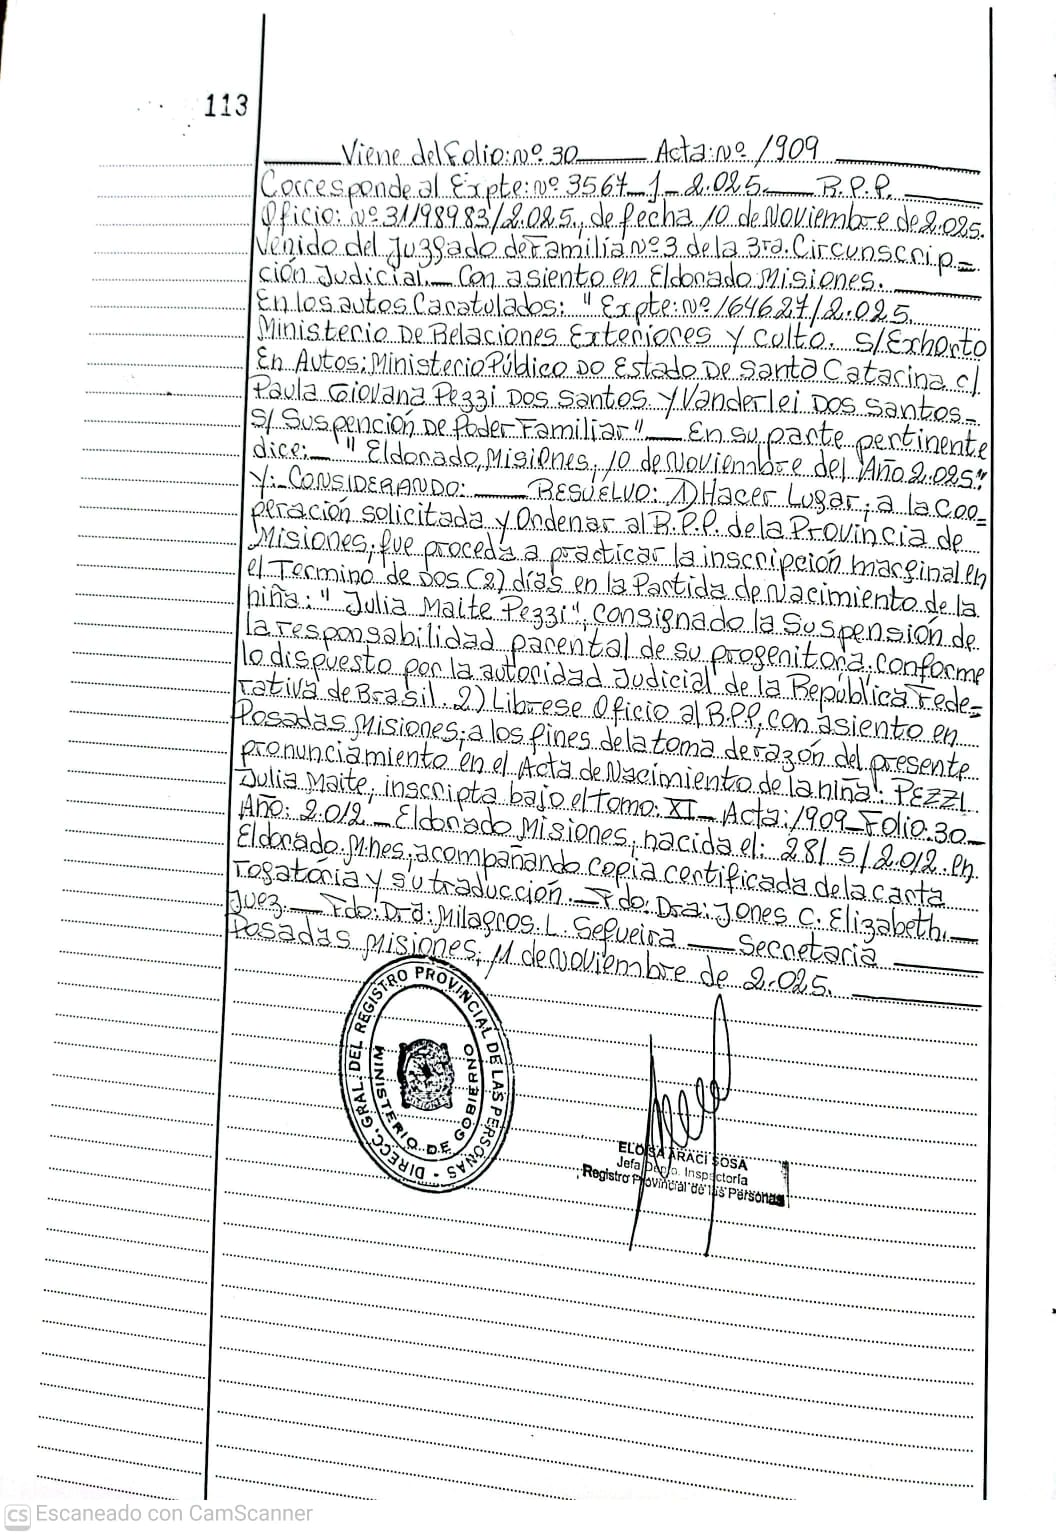 113
Viene del Folio: nº 30 Acta: nº 1909
Corresponde al Expte: nº 3567-J-2.025. R.P.P.
Oficio: nº 31198983/2.025., de fecha 10 de Noviembre de 2.025.
Venido del Juzgado de Familia Nº 3 de la 3ra. Circunscrip=
ción Judicial.- Con asiento en Eldorado Misiones.
En los autos Caratulados: " Expte: nº 164627/2.025.
Ministerio De Relaciones Exteriores y Culto. S/ Exhorto
En Autos: Ministerio Público Do Estado De Santa Catarina c/.
Paula Giovana Pezzi Dos Santos y Vanderlei Dos Santos-
S/ Suspención De Poder Familiar"- En su parte pertinente
dice:- " Eldorado, Misiones, 10 de Noviembre del Año 2.025."
Y:- CONSIDERANDO: RESUELVO: 1) Hacer Lugar, a la Coo=
peración solicitada y Ordenar al R.P.P. de la Provincia de
Misiones, que proceda a practicar la inscripción marginal en
el Termino de Dos (2) días en la Partida de Nacimiento de la
niña: " Julia Maite Pezzi", consignado la Suspensión de
la responsabilidad parental de su progenitora, conforme
lo dispuesto por la autoridad Judicial de la República Fede=
rativa de Brasil. 2) Librese Oficio al R.P.P, con asiento en
Posadas Misiones, a los fines de la toma de razón del presente
pronunciamiento en el Acta de Nacimiento de la niña: PEZZI
Julia Maite, inscripta bajo el tomo: XI- Acta: 1909- Folio: 30-
Año: 2.012 - Eldorado Misiones, nacida el: 28/5/2.012. en
Eldorado. Mnes, acompañando copia certificada de la carta
rogatoria y su traducción.- Fdo: Dra: Jones C. Elizabeth.
Juez.- Fdo: Dra: Milagros. L. Sequeira Secretaria
Posadas Misiones, 11 de Noviembre de 2.025.
DIRECC. GRAL. DEL REGISTRO PROVINCIAL DE LAS PERSONAS
MINISTERIO DE GOBIERNO
ELOISA ARACI SOSA
Jefa Depto. Inspectoría
Registro Provincial de las Personas
CS Escaneado con CamScanner